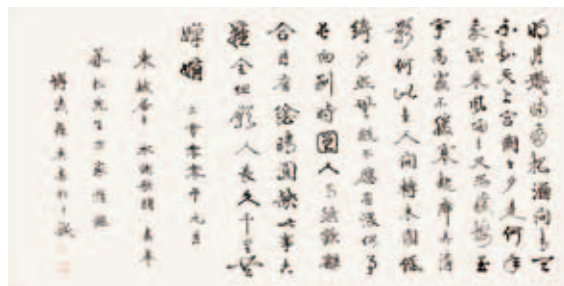 明月幾時有把酒問青天
不知天上宮闕今夕是何年
我欲乘風歸去又恐瓊樓玉
宇高處不勝寒起舞弄清
影何似在人間轉朱閣低
綺戶照無眠不應有恨何事
長向別時圓人有悲歡離
合月有陰晴圓缺此事古
難全但願人長久千里共
嬋娟
東坡居士水調歌頭
先生方家雅